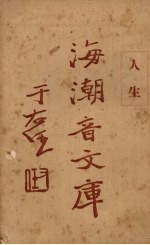 人生
海潮音文庫
于右任